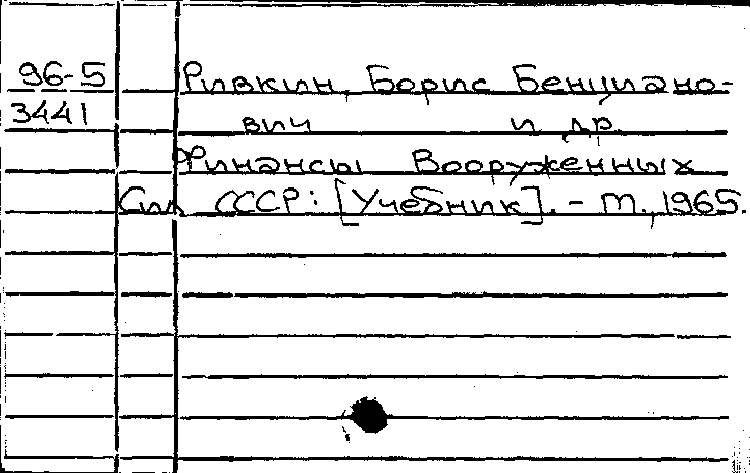 96-5 Ривкин, Борис Бенциано-
3441 вич и др.
Финансы Вооруженных
Сил СССР: [Учебник]. - М., 1965.